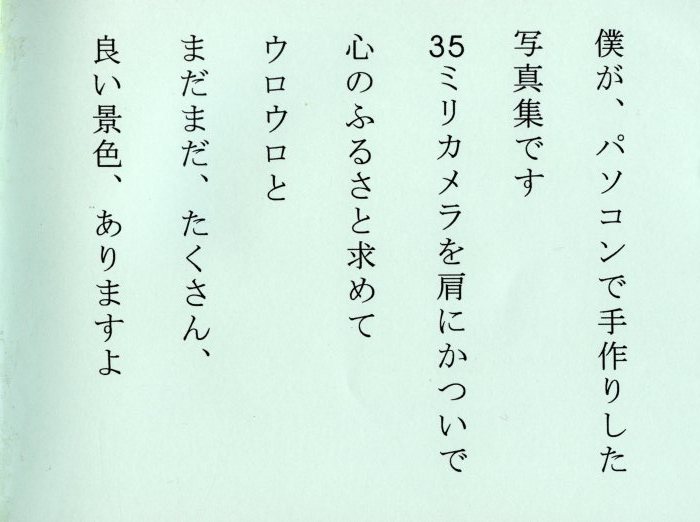 僕が、パソコンで手作りした
写真集です
35ミリカメラを肩にかついで
心のふるさと求めて
ウロウロと
まだまだ、たくさん、
良い景色、ありますよ